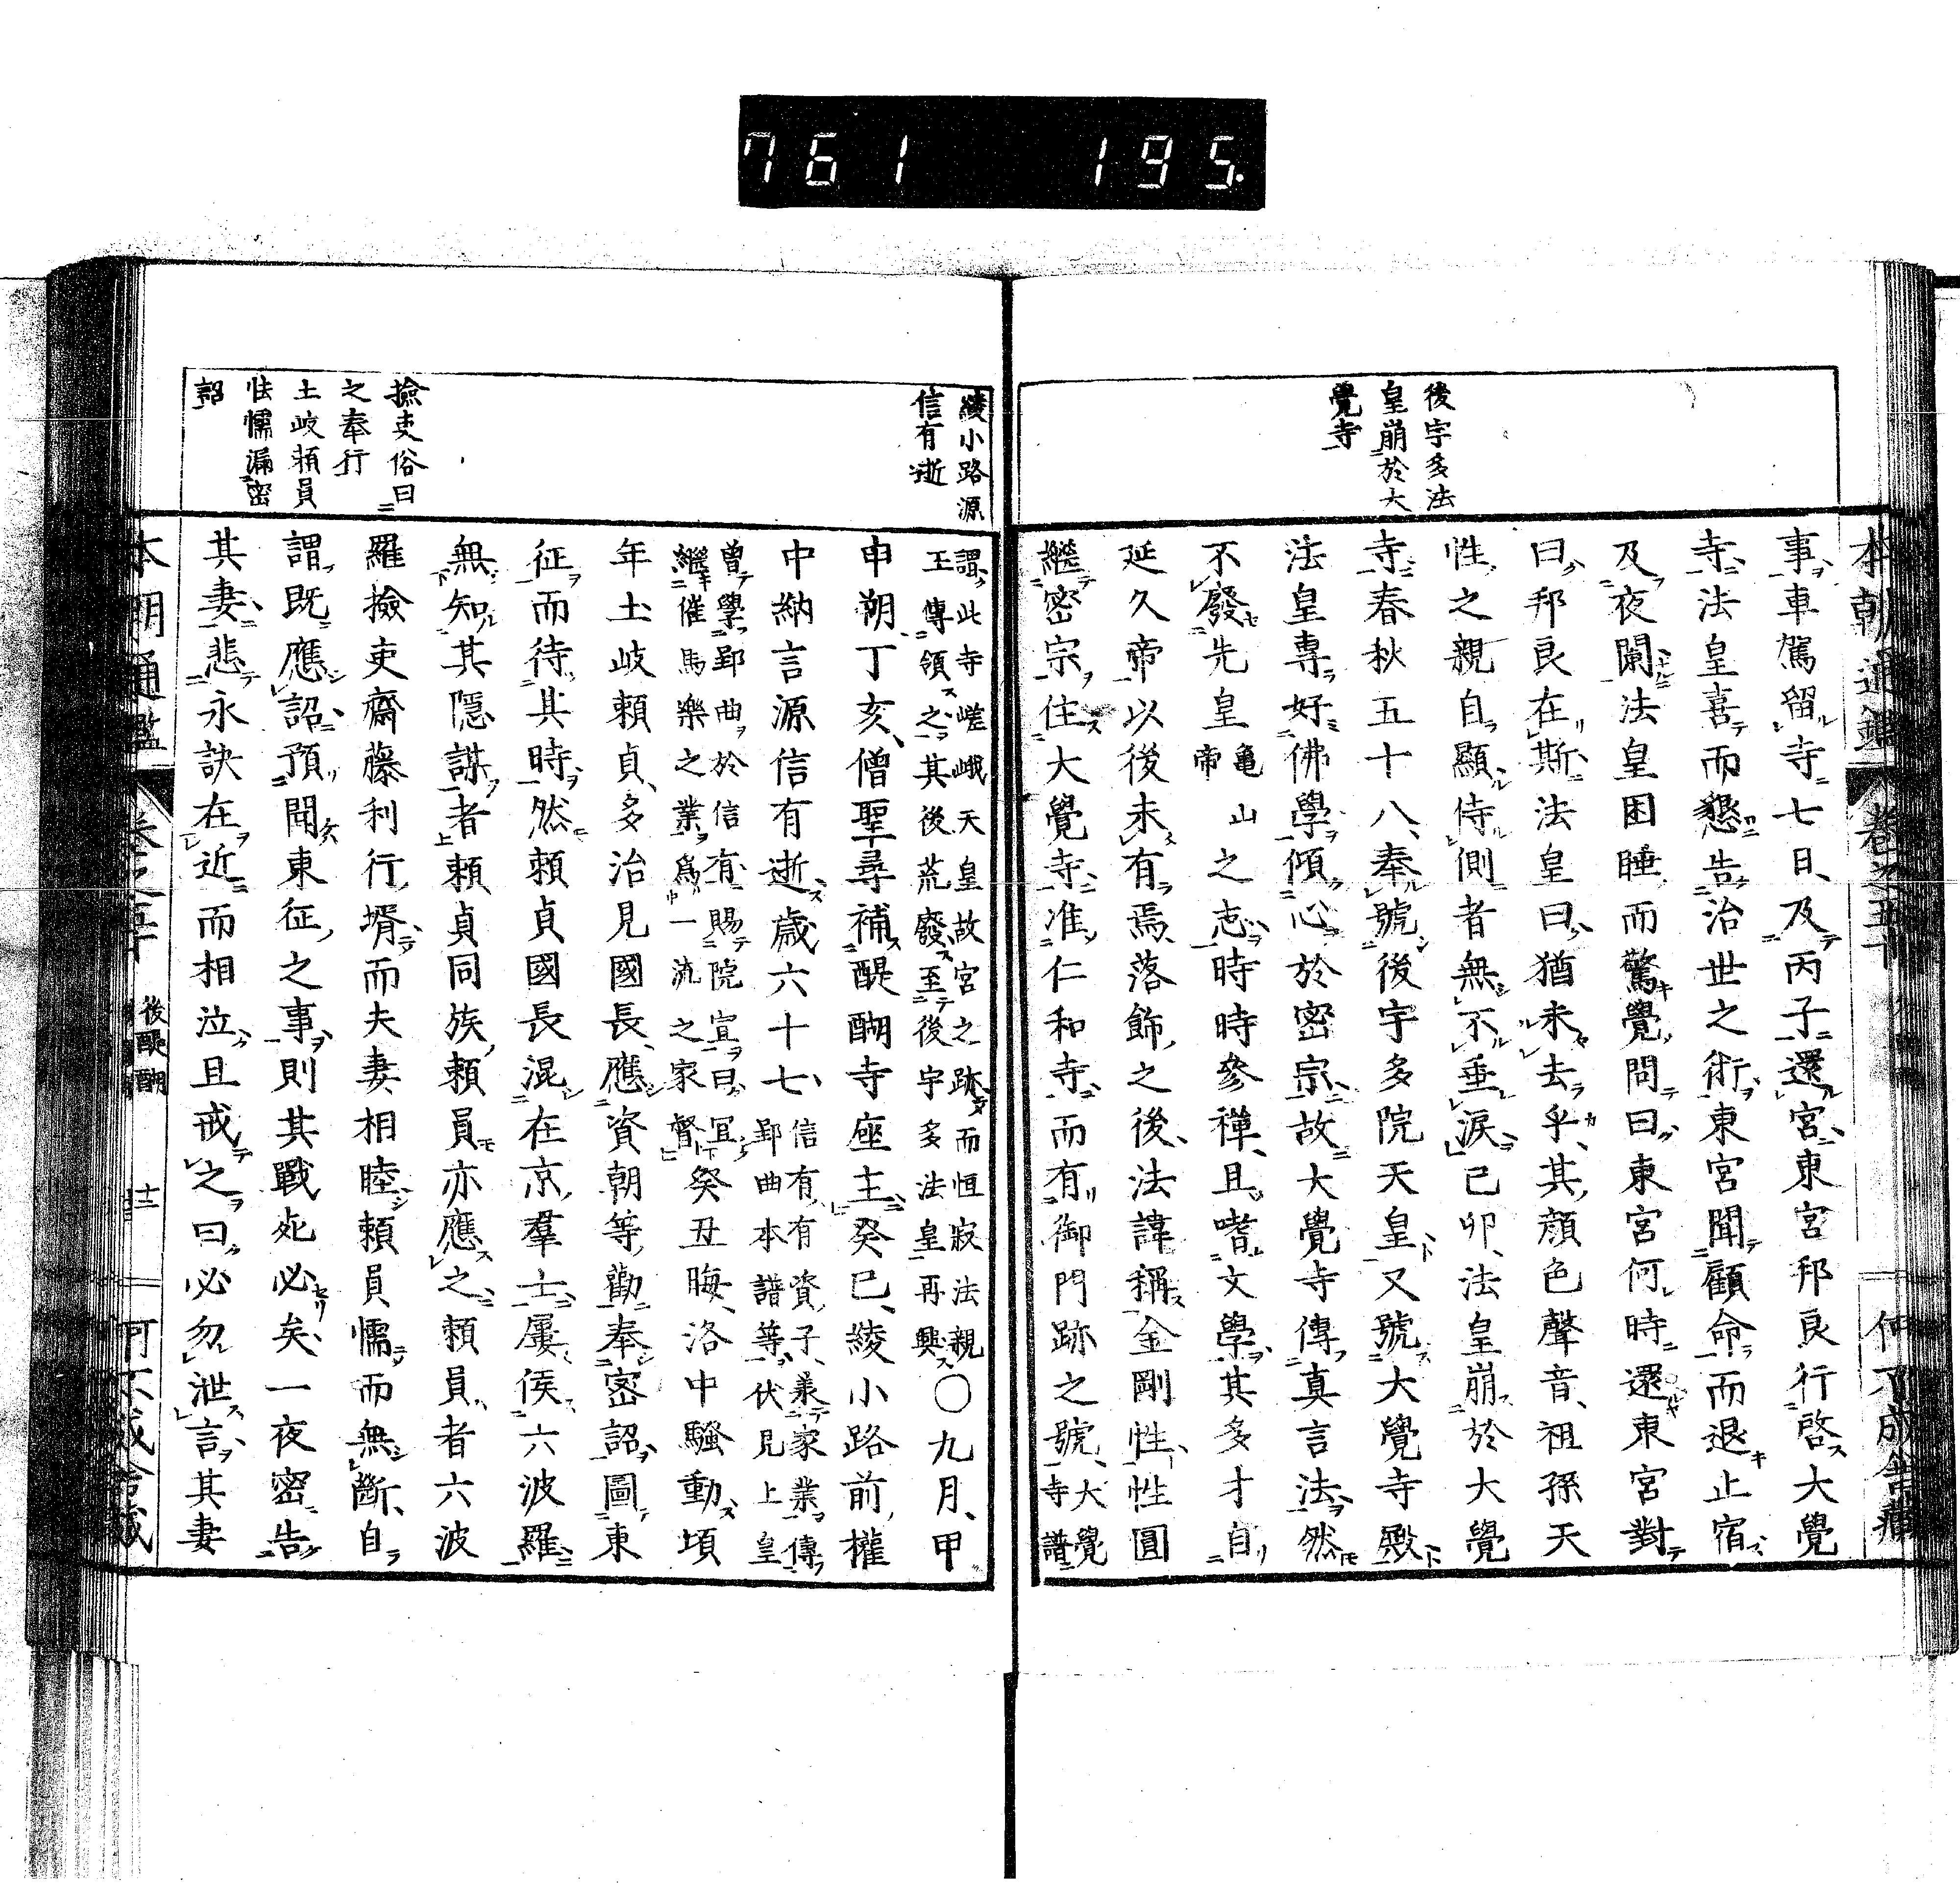 761 195.
本朝通鑑 卷之五十 何不成舍藏
後宇多法
皇崩於大
覺寺
事車駕留寺七日及丙子還宮東宮邦良行啓大覺
寺法皇喜而懇告治世之術東宮聞顧命而退止宿
及夜闌法皇困睡而驚覺問曰東宮何時還東宮對
曰邦良在斯法皇曰猶未去乎其顏色聲音祖孫天
性之親自顯侍側者無不垂淚己卯法皇崩於大覺
寺春秋五十八奉號後宇多院天皇又號大覺寺殿
法皇專好佛學傾心於密宗故大覺寺傳真言法然
不廢先皇龜山帝之志時時參禪且嗜文學其多才自
延久帝以後未有焉落飾之後法諱稱金剛性性圓
繼密宗住大覺寺准仁和寺而有御門跡之號大覺寺譜
綾小路源
信有逝
謂此寺嵯峨天皇故宮之跡而恒寂法親
王傳領之其後荒廢至後宇多法皇再興〇九月甲
申朔丁亥僧聖尋補醍醐寺座主癸巳綾小路前權
中納言源信有逝歲六十七信有有資子兼家業傳
郢曲本譜等伏見上皇
曾學郢曲於信有賜院宣曰宜
繼催馬樂之業爲一流之家督癸丑晦洛中騷動頃
年土岐賴貞多治見國長應資朝等勸奉密詔圖東
征而待其時然賴貞國長混在京羣士屢候六波羅
無知其隱謀者賴貞同族賴員亦應之賴員者六波
羅撿吏齋藤利行壻而夫妻相睦賴員懦而無斷自
謂既應詔預聞東征之事則其戰死必矣一夜密告
其妻悲永訣在近而相泣且戒之曰必勿泄言其妻
撿吏俗曰
之奉行
土岐賴員
怯懦漏密
詔
本朝通鑑 卷之五十 後醍醐 十二 何不成舍藏